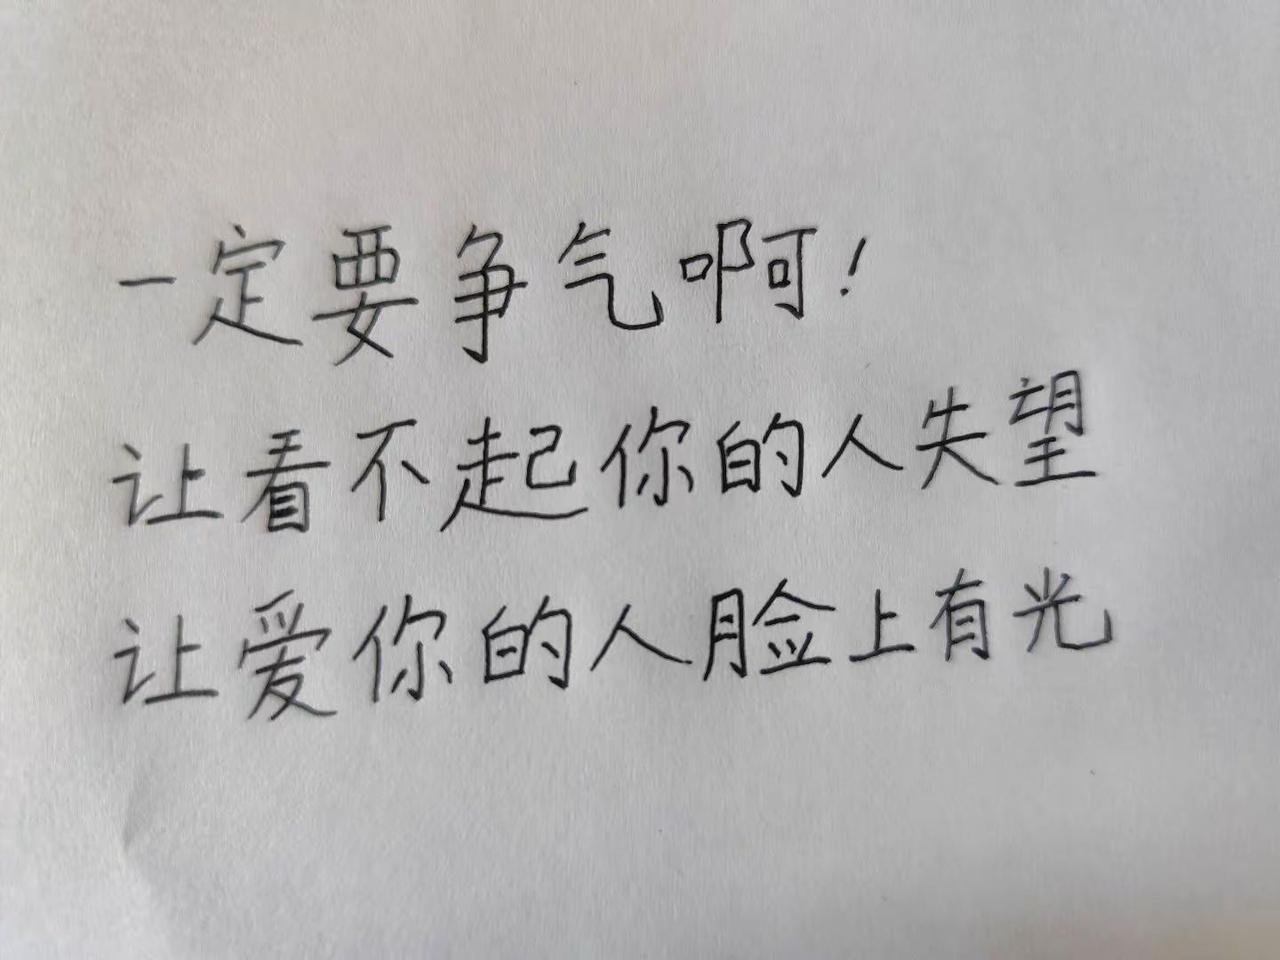 一定要争气啊!
让看不起你的人失望
让爱你的人脸上有光